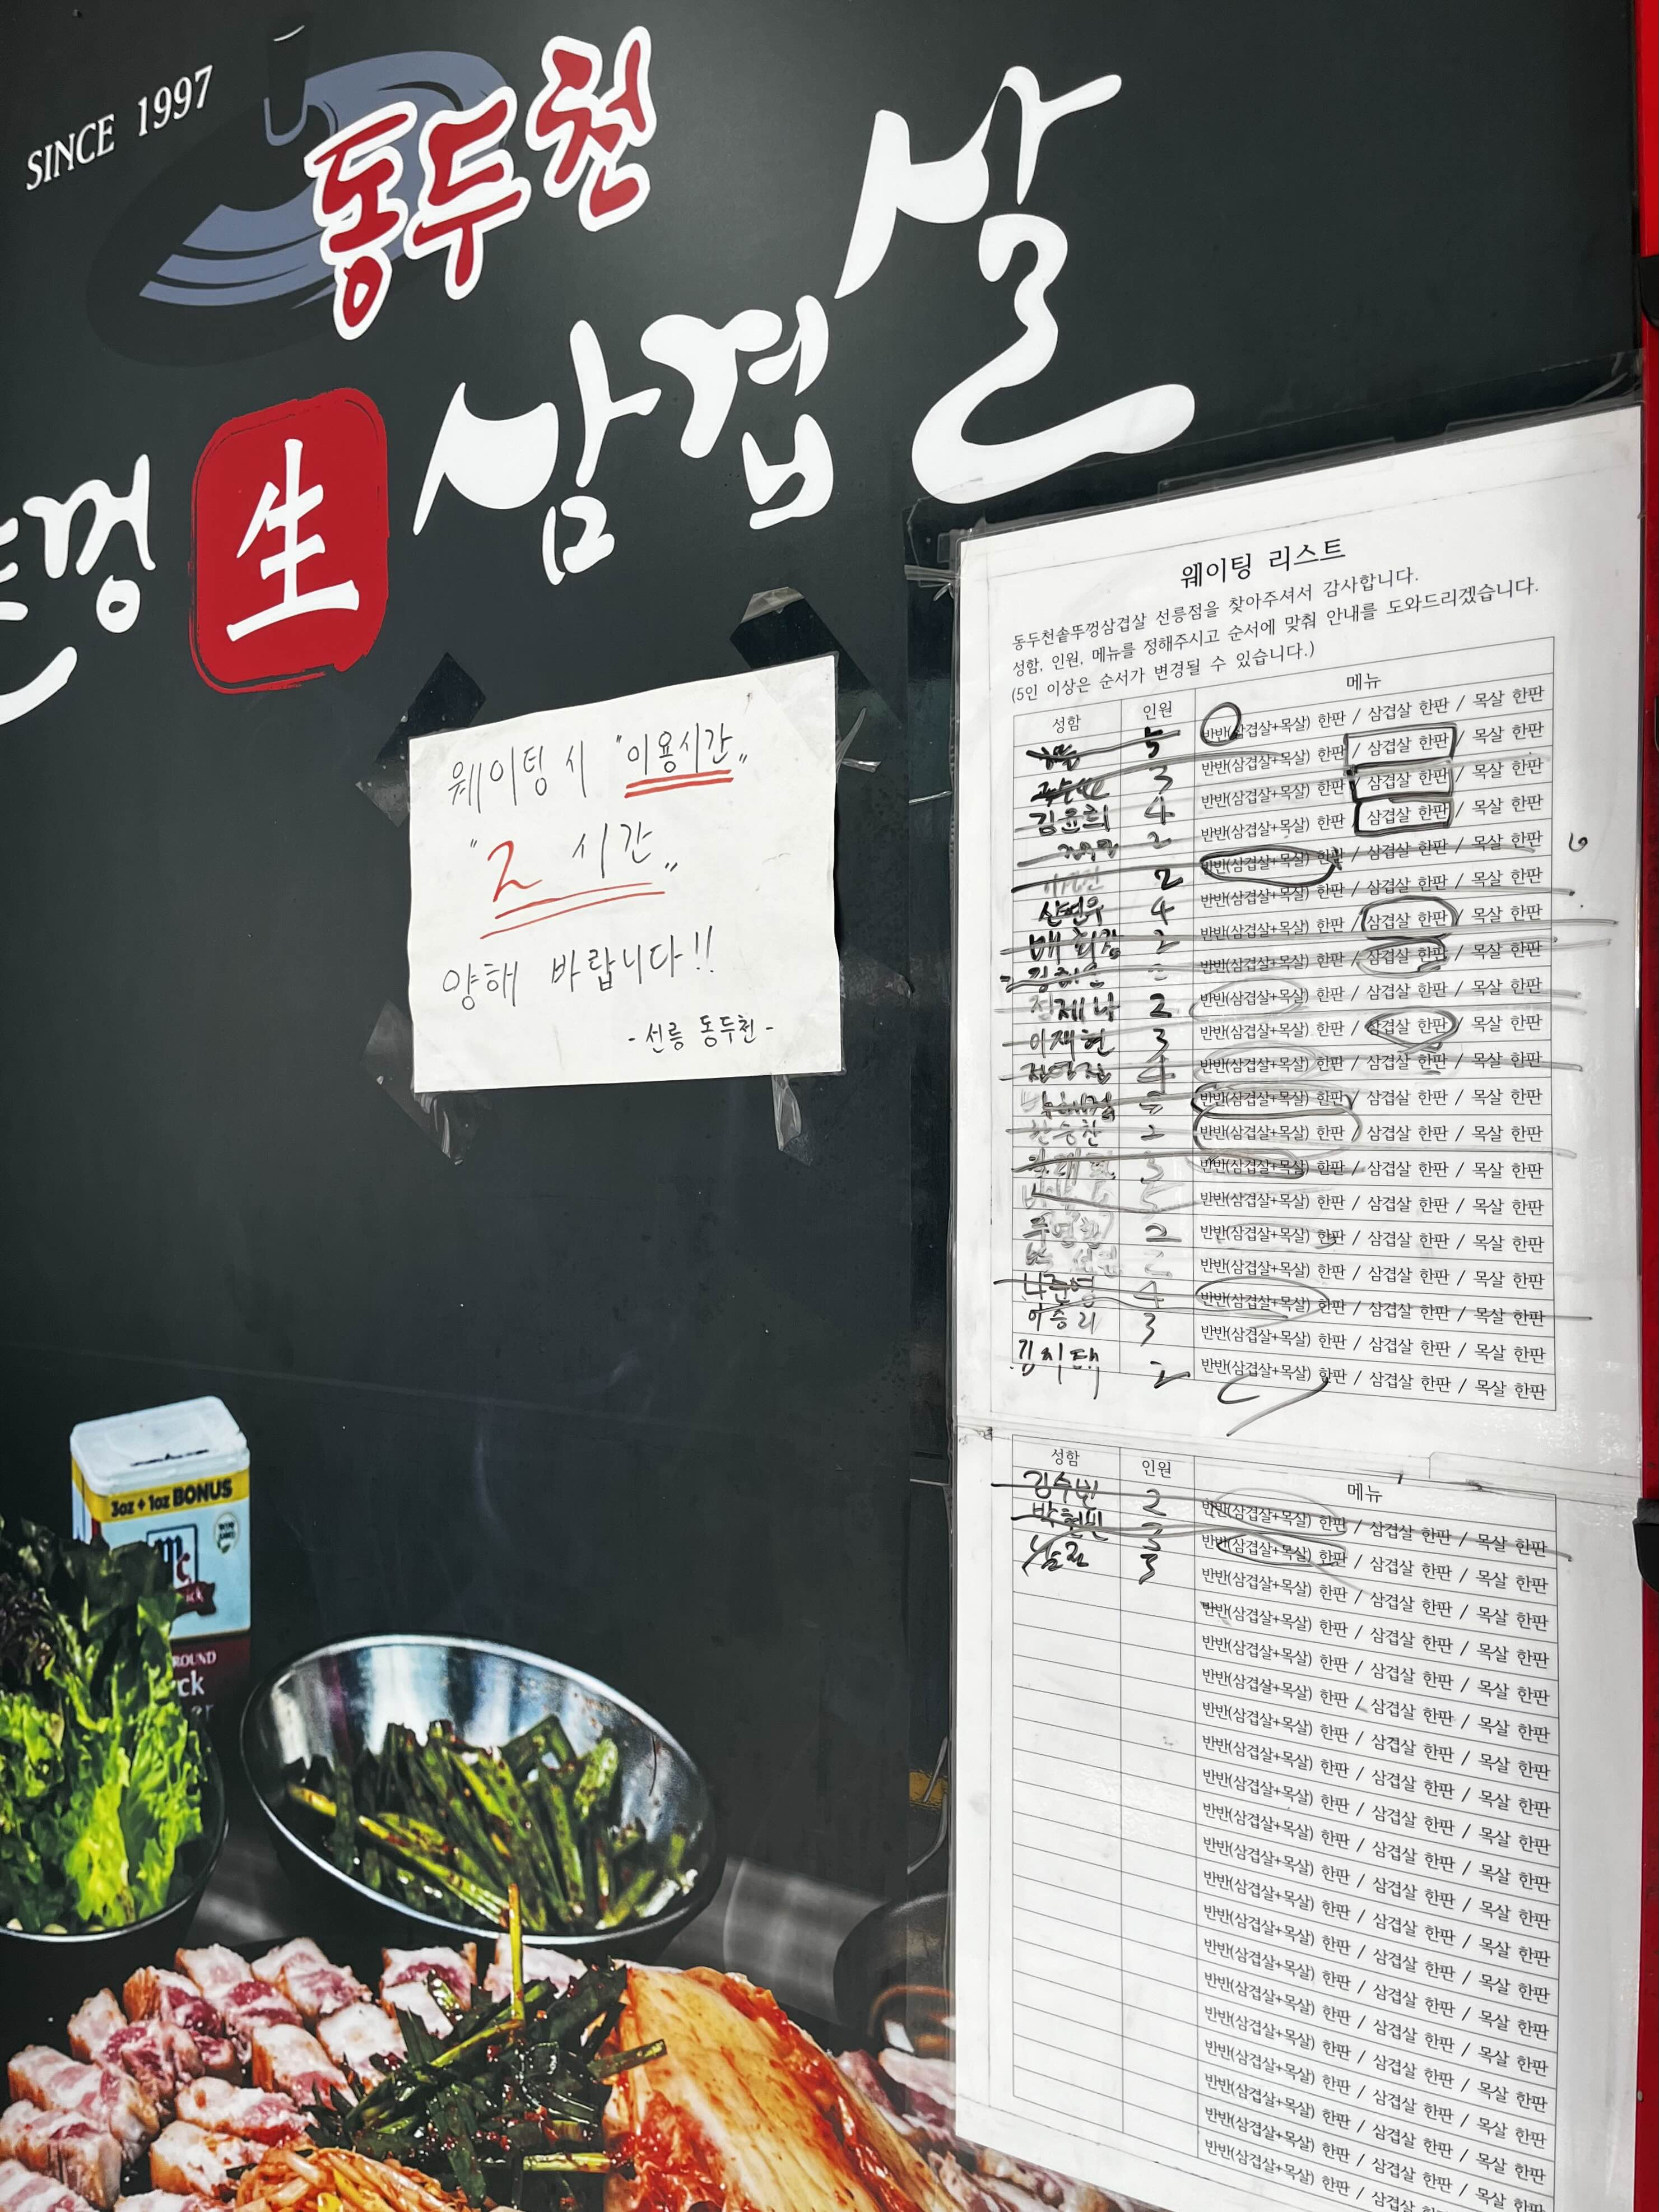 SINCE 1997
동두천
뚜껑 生 삼겹살
웨이팅 시 "이용시간"
"2 시간"
양해 바랍니다!!
- 선릉 동두천 -
웨이팅 리스트
동두천솥뚜껑삼겹살 선릉점을 찾아주셔서 감사합니다.
성함, 인원, 메뉴를 정해주시고 순서에 맞춰 안내를 도와드리겠습니다.
(5인 이상은 순서가 변경될 수 있습니다.)
성함 인원 메뉴
5 반반(삼겹살+목살) 한판 / 삼겹살 한판 / 목살 한판
3 반반(삼겹살+목살) 한판 / 삼겹살 한판 / 목살 한판
김윤희 4 반반(삼겹살+목살) 한판 / 삼겹살 한판 / 목살 한판
2 반반(삼겹살+목살) 한판 / 삼겹살 한판 / 목살 한판
2 반반(삼겹살+목살) 한판 / 삼겹살 한판 / 목살 한판
신연우 4 반반(삼겹살+목살) 한판 / 삼겹살 한판 / 목살 한판
배 회장 2 반반(삼겹살+목살) 한판 / 삼겹살 한판 / 목살 한판
반반(삼겹살+목살) 한판 / 삼겹살 한판 / 목살 한판
2 반반(삼겹살+목살) 한판 / 삼겹살 한판 / 목살 한판
이재현 3 반반(삼겹살+목살) 한판 / 삼겹살 한판 / 목살 한판
4 반반(삼겹살+목살) 한판 / 삼겹살 한판 / 목살 한판
반반(삼겹살+목살) 한판 / 삼겹살 한판 / 목살 한판
한승찬 2 반반(삼겹살+목살) 한판 / 삼겹살 한판 / 목살 한판
3 반반(삼겹살+목살) 한판 / 삼겹살 한판 / 목살 한판
반반(삼겹살+목살) 한판 / 삼겹살 한판 / 목살 한판
2 반반(삼겹살+목살) 한판 / 삼겹살 한판 / 목살 한판
2 반반(삼겹살+목살) 한판 / 삼겹살 한판 / 목살 한판
나준영 4 반반(삼겹살+목살) 한판 / 삼겹살 한판 / 목살 한판
이승리 3 반반(삼겹살+목살) 한판 / 삼겹살 한판 / 목살 한판
김지택 2 반반(삼겹살+목살) 한판 / 삼겹살 한판 / 목살 한판
성함 인원 메뉴
김수빈 2 반반(삼겹살+목살) 한판 / 삼겹살 한판 / 목살 한판
박현빈 3 반반(삼겹살+목살) 한판 / 삼겹살 한판 / 목살 한판
3 반반(삼겹살+목살) 한판 / 삼겹살 한판 / 목살 한판
반반(삼겹살+목살) 한판 / 삼겹살 한판 / 목살 한판
반반(삼겹살+목살) 한판 / 삼겹살 한판 / 목살 한판
반반(삼겹살+목살) 한판 / 삼겹살 한판 / 목살 한판
반반(삼겹살+목살) 한판 / 삼겹살 한판 / 목살 한판
반반(삼겹살+목살) 한판 / 삼겹살 한판 / 목살 한판
반반(삼겹살+목살) 한판 / 삼겹살 한판 / 목살 한판
반반(삼겹살+목살) 한판 / 삼겹살 한판 / 목살 한판
반반(삼겹살+목살) 한판 / 삼겹살 한판 / 목살 한판
반반(삼겹살+목살) 한판 / 삼겹살 한판 / 목살 한판
반반(삼겹살+목살) 한판 / 삼겹살 한판 / 목살 한판
반반(삼겹살+목살) 한판 / 삼겹살 한판 / 목살 한판
반반(삼겹살+목살) 한판 / 삼겹살 한판 / 목살 한판
반반(삼겹살+목살) 한판 / 삼겹살 한판 / 목살 한판
반반(삼겹살+목살) 한판 / 삼겹살 한판 / 목살 한판
반반(삼겹살+목살) 한판 / 삼겹살 한판 / 목살 한판
반반(삼겹살+목살) 한판 / 삼겹살 한판
반반(삼겹살+목살) 한판
3oz + 1oz BONUS